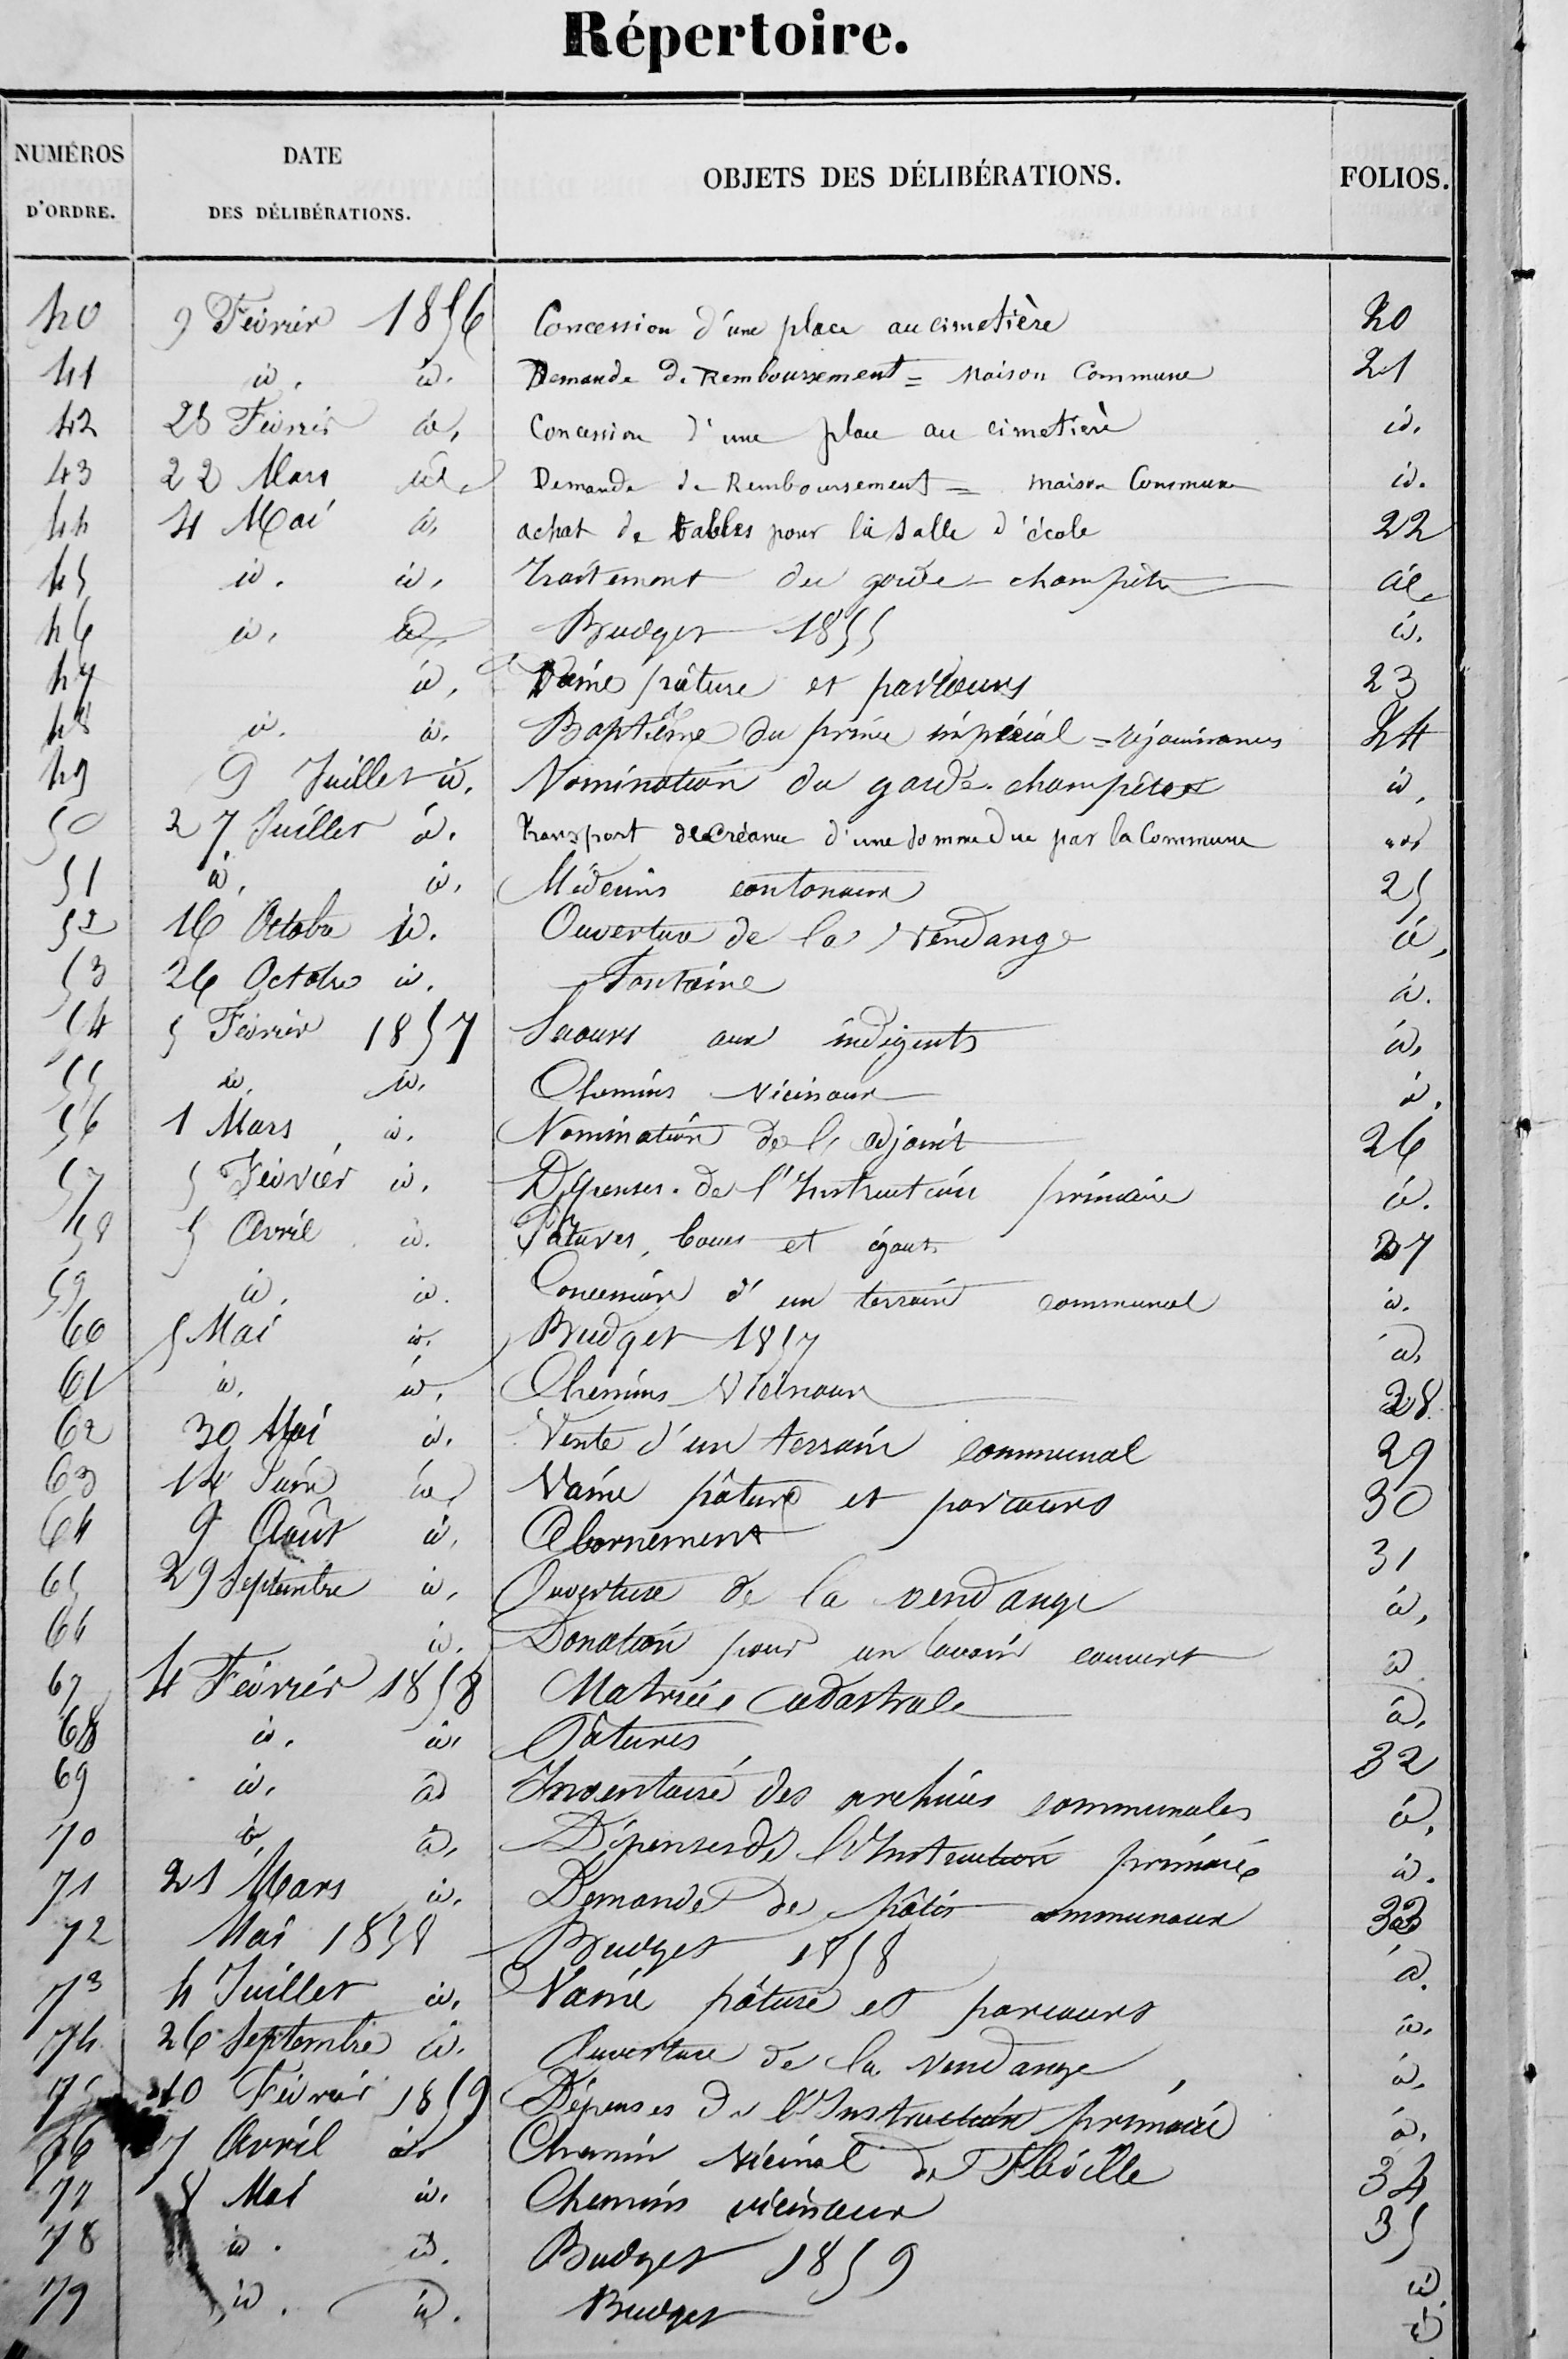 Répertoire.
NUMÉROS D'ORDRE. DATE DES DÉLIBÉRATIONS. OBJETS DES DÉLIBÉRATIONS. FOLIOS.
40 9 Février 1856 Concession d'une place au cimetière 20
41 id. id. Demande de Remboursement = Maison Commune 21
42 28 Février id. Concession d'une place au cimetière id.
43 22 Mars id. Demande de Remboursement = maison Commune id.
44 4 Mai id. achat de tables pour la salle d'école 22
45 id. id. Traitement du garde-champêtre id.
46 id. id. Budget 1855 id.
47 id. Vaine pâture et parcours 23
48 id. id. Baptême du prince impérial = réjouissances 24
49 9 Juillet id. Nomination du garde-champêtre id.
50 27 Juillet id. Transport de créance d'une somme due par la Commune id.
51 id. id. Médecins cantonaux 25
52 16 Octobre id. Ouverture de la Vendange id.
53 26 Octobre id. Fontaine id.
54 5 Février 1857 Secours aux indigents id.
55 id. id. Chemins vicinaux id.
56 1 Mars id. Nomination de l'adjoint 26
57 5 Février id. Dépenses de l'Instruction primaire id.
58 5 Avril id. Pâtures, boues et égouts 27
59 id. id. Concession d'un terrain communal id.
60 5 Mai id. Budget 1857 id.
61 id. id. Chemins Vicinaux 28
62 30 Mai id. Vente d'un terrain communal 29
63 14 Juin id. Vaine pâture et parcours 30
64 9 Août id. Abornement 31
65 29 Septembre id. Ouverture de la vendange id.
66 id. Donation pour un lavoir couvert id.
67 4 Février 1858 Matrice Cadastrale id.
68 id. id. Pâtures 32
69 id. id. Inventaire des archives communales id.
70 id. id. Dépenses de l'Instruction primaire id.
71 21 Mars id. Demande de pâtis communaux 33
72 Mai 1858 Budget 1858 id.
73 4 Juillet id. Vaine pâture et parcours id.
74 26 Septembre id. Ouverture de la Vendange id.
75 10 Février 1859 Dépenses de l'Instruction primaire id.
76 7 Avril id. Chemin vicinal de Fléville 34
77 8 Mai id. Chemins vicinaux 35
78 id. id. Budget 1859 id.
79 id. id. Budget id.